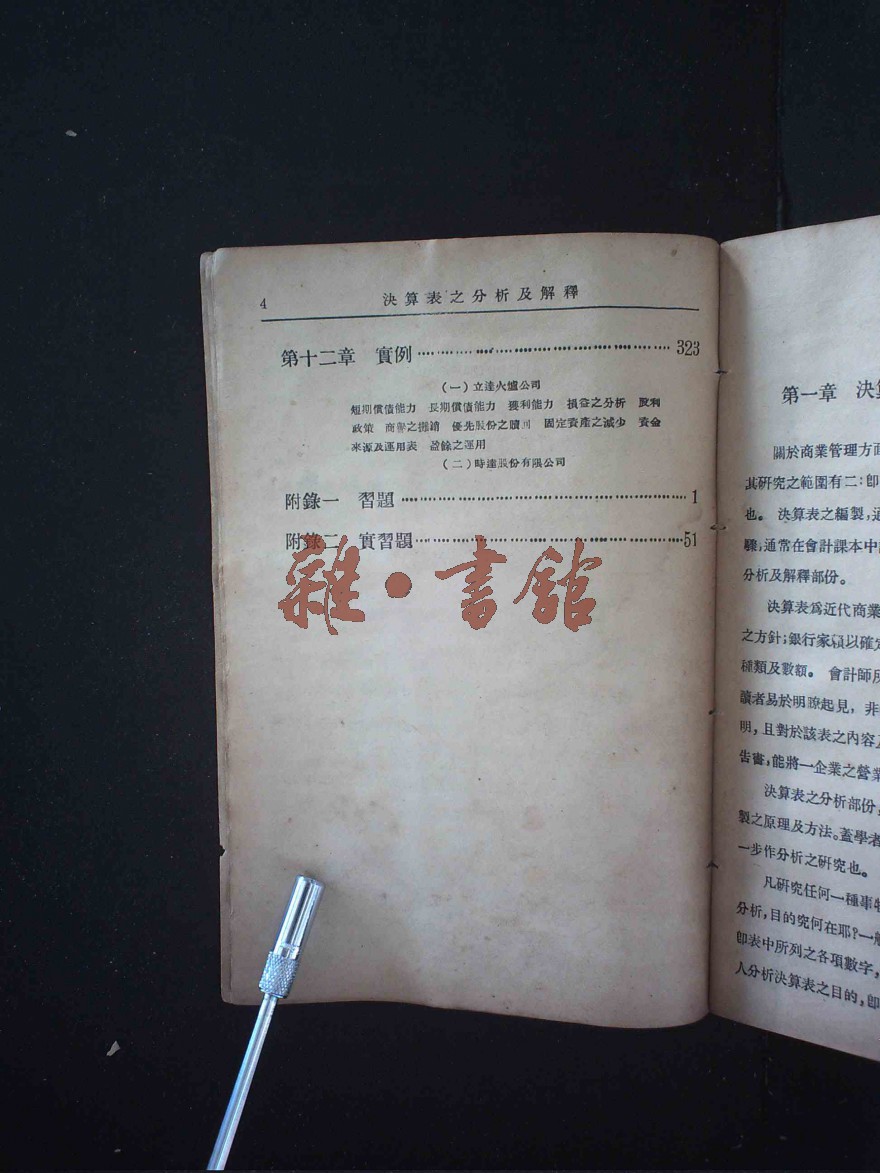 4
決算表之分析及解釋
第十二章 實例 323
(一)立達火爐公司
短期償債能力 長期償債能力 獲利能力 損益之分析 股利
政策 商譽之攤銷 優先股份之贖回 固定資產之減少 資金
來源及運用表 盈餘之運用
(二)時達股份有限公司
附錄一 習題 1
附錄二 實習題 51
雜·書館
第一章 決
關於商業管理方面
其研究之範圍有二:卽
也。決算表之編製,通
驟,通常在會計課本中
分析及解釋部份。
決算表爲近代商業
之方針;銀行家須以確定
種類及數額。會計師
讀者易於明瞭起見,非
明,且對於該表之內容
告書,能將一企業之營業
決算表之分析部份,
製之原理及方法。蓋學者
一步作分析之研究也。
凡研究任何一種事物
分析,目的究何在耶?一般
卽表中所列之各項數字,
人分析決算表之目的,卽